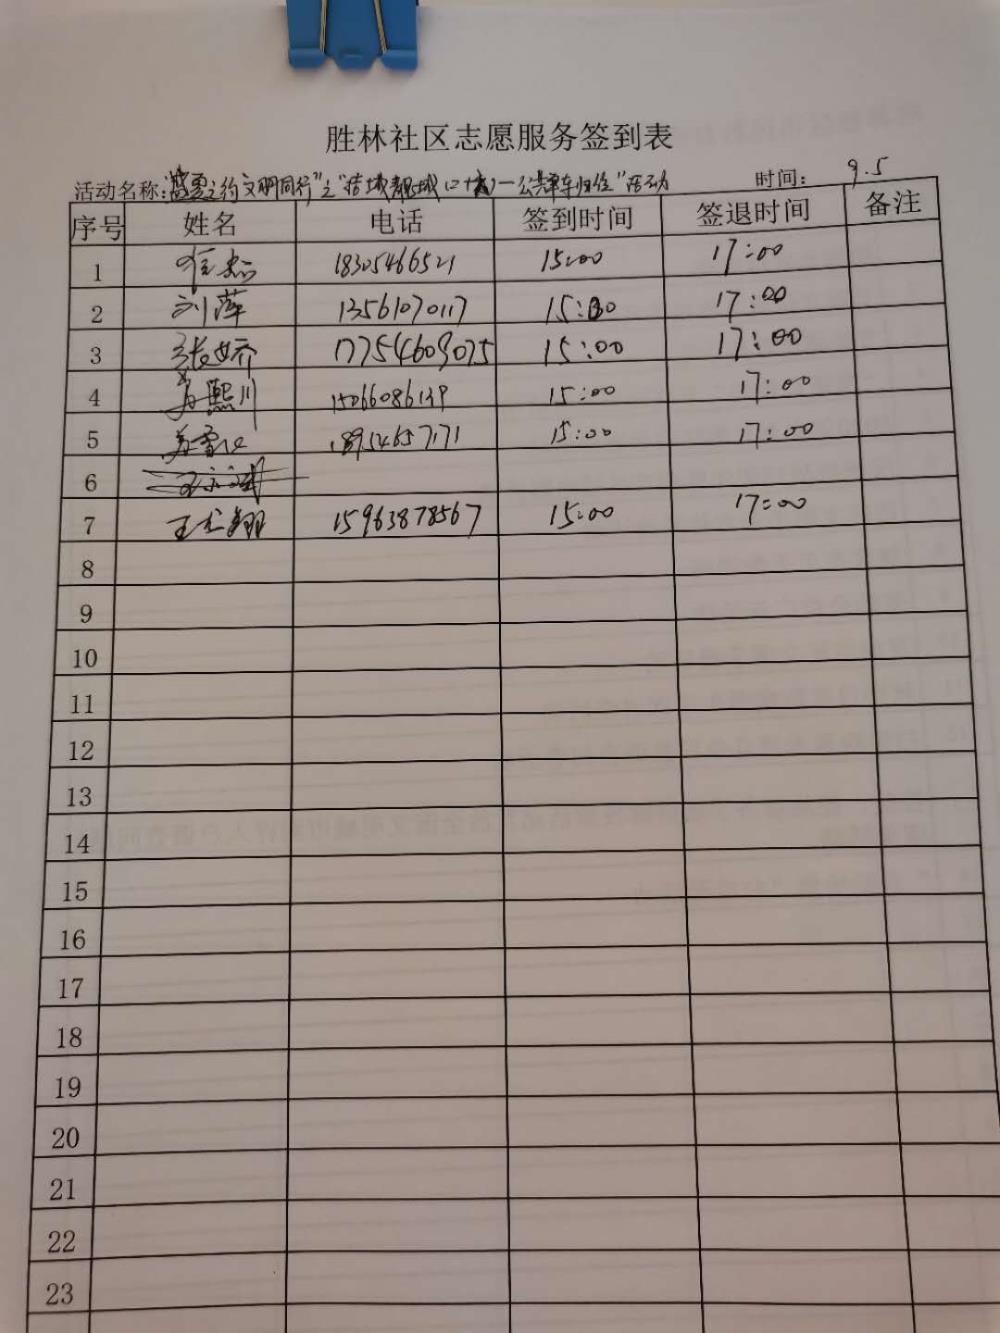 胜林社区志愿服务签到表
活动名称: 之约文明同行"之" 城靓城(二十)一公共单车归位"活动 时间: 9.5
序号 姓名 电话 签到时间 签退时间 备注
1 18305466521 15:00 17:00
2 刘萍 13561070117 15:00 17:00
3 张娇 17754609075 15:00 17:00
4 熙川 15066086139 15:00 17:00
5 18954657171 15:00 17:00
6
7 王 翔 15963878567 15:00 17:00
8
9
10
11
12
13
14
15
16
17
18
19
20
21
22
23